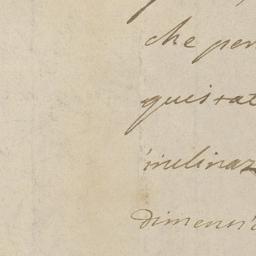 che per
quistat
inclinaz
dimensi